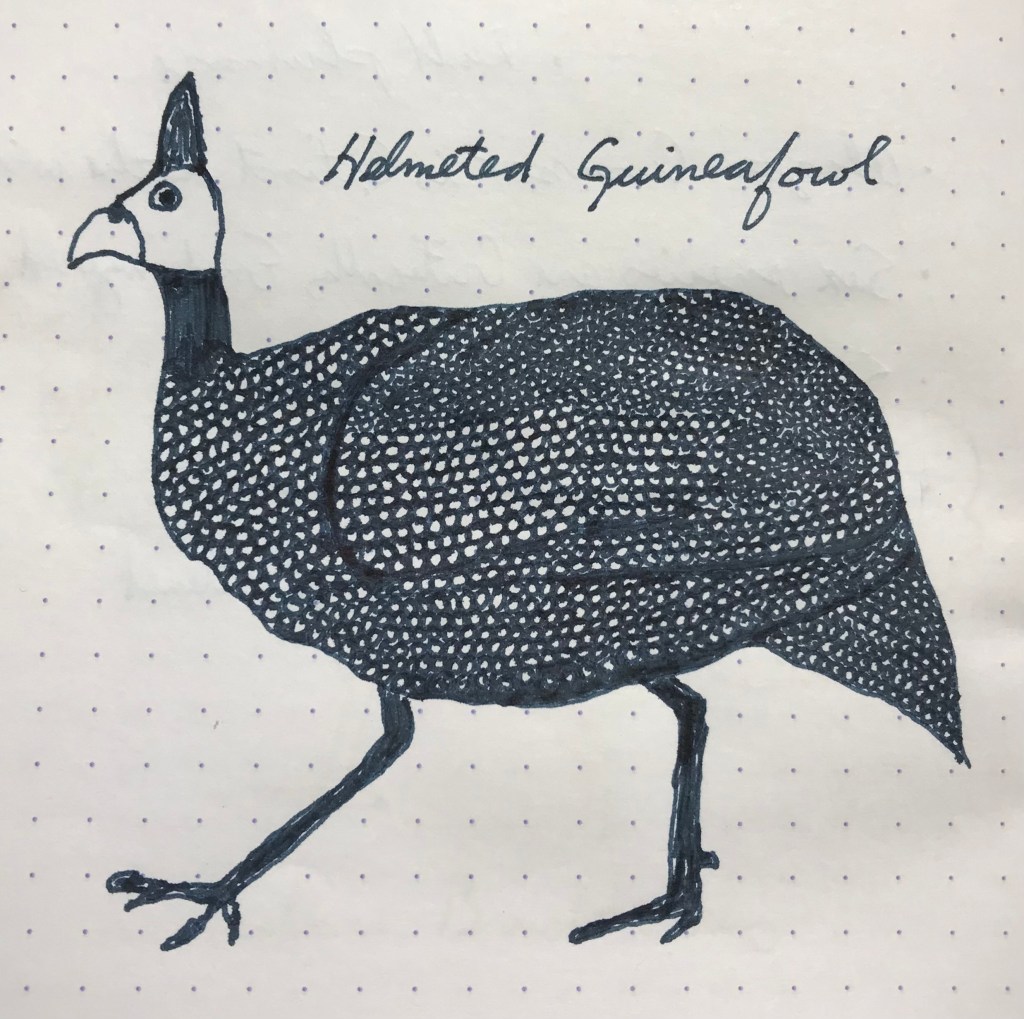 Helmeted Guineafowl